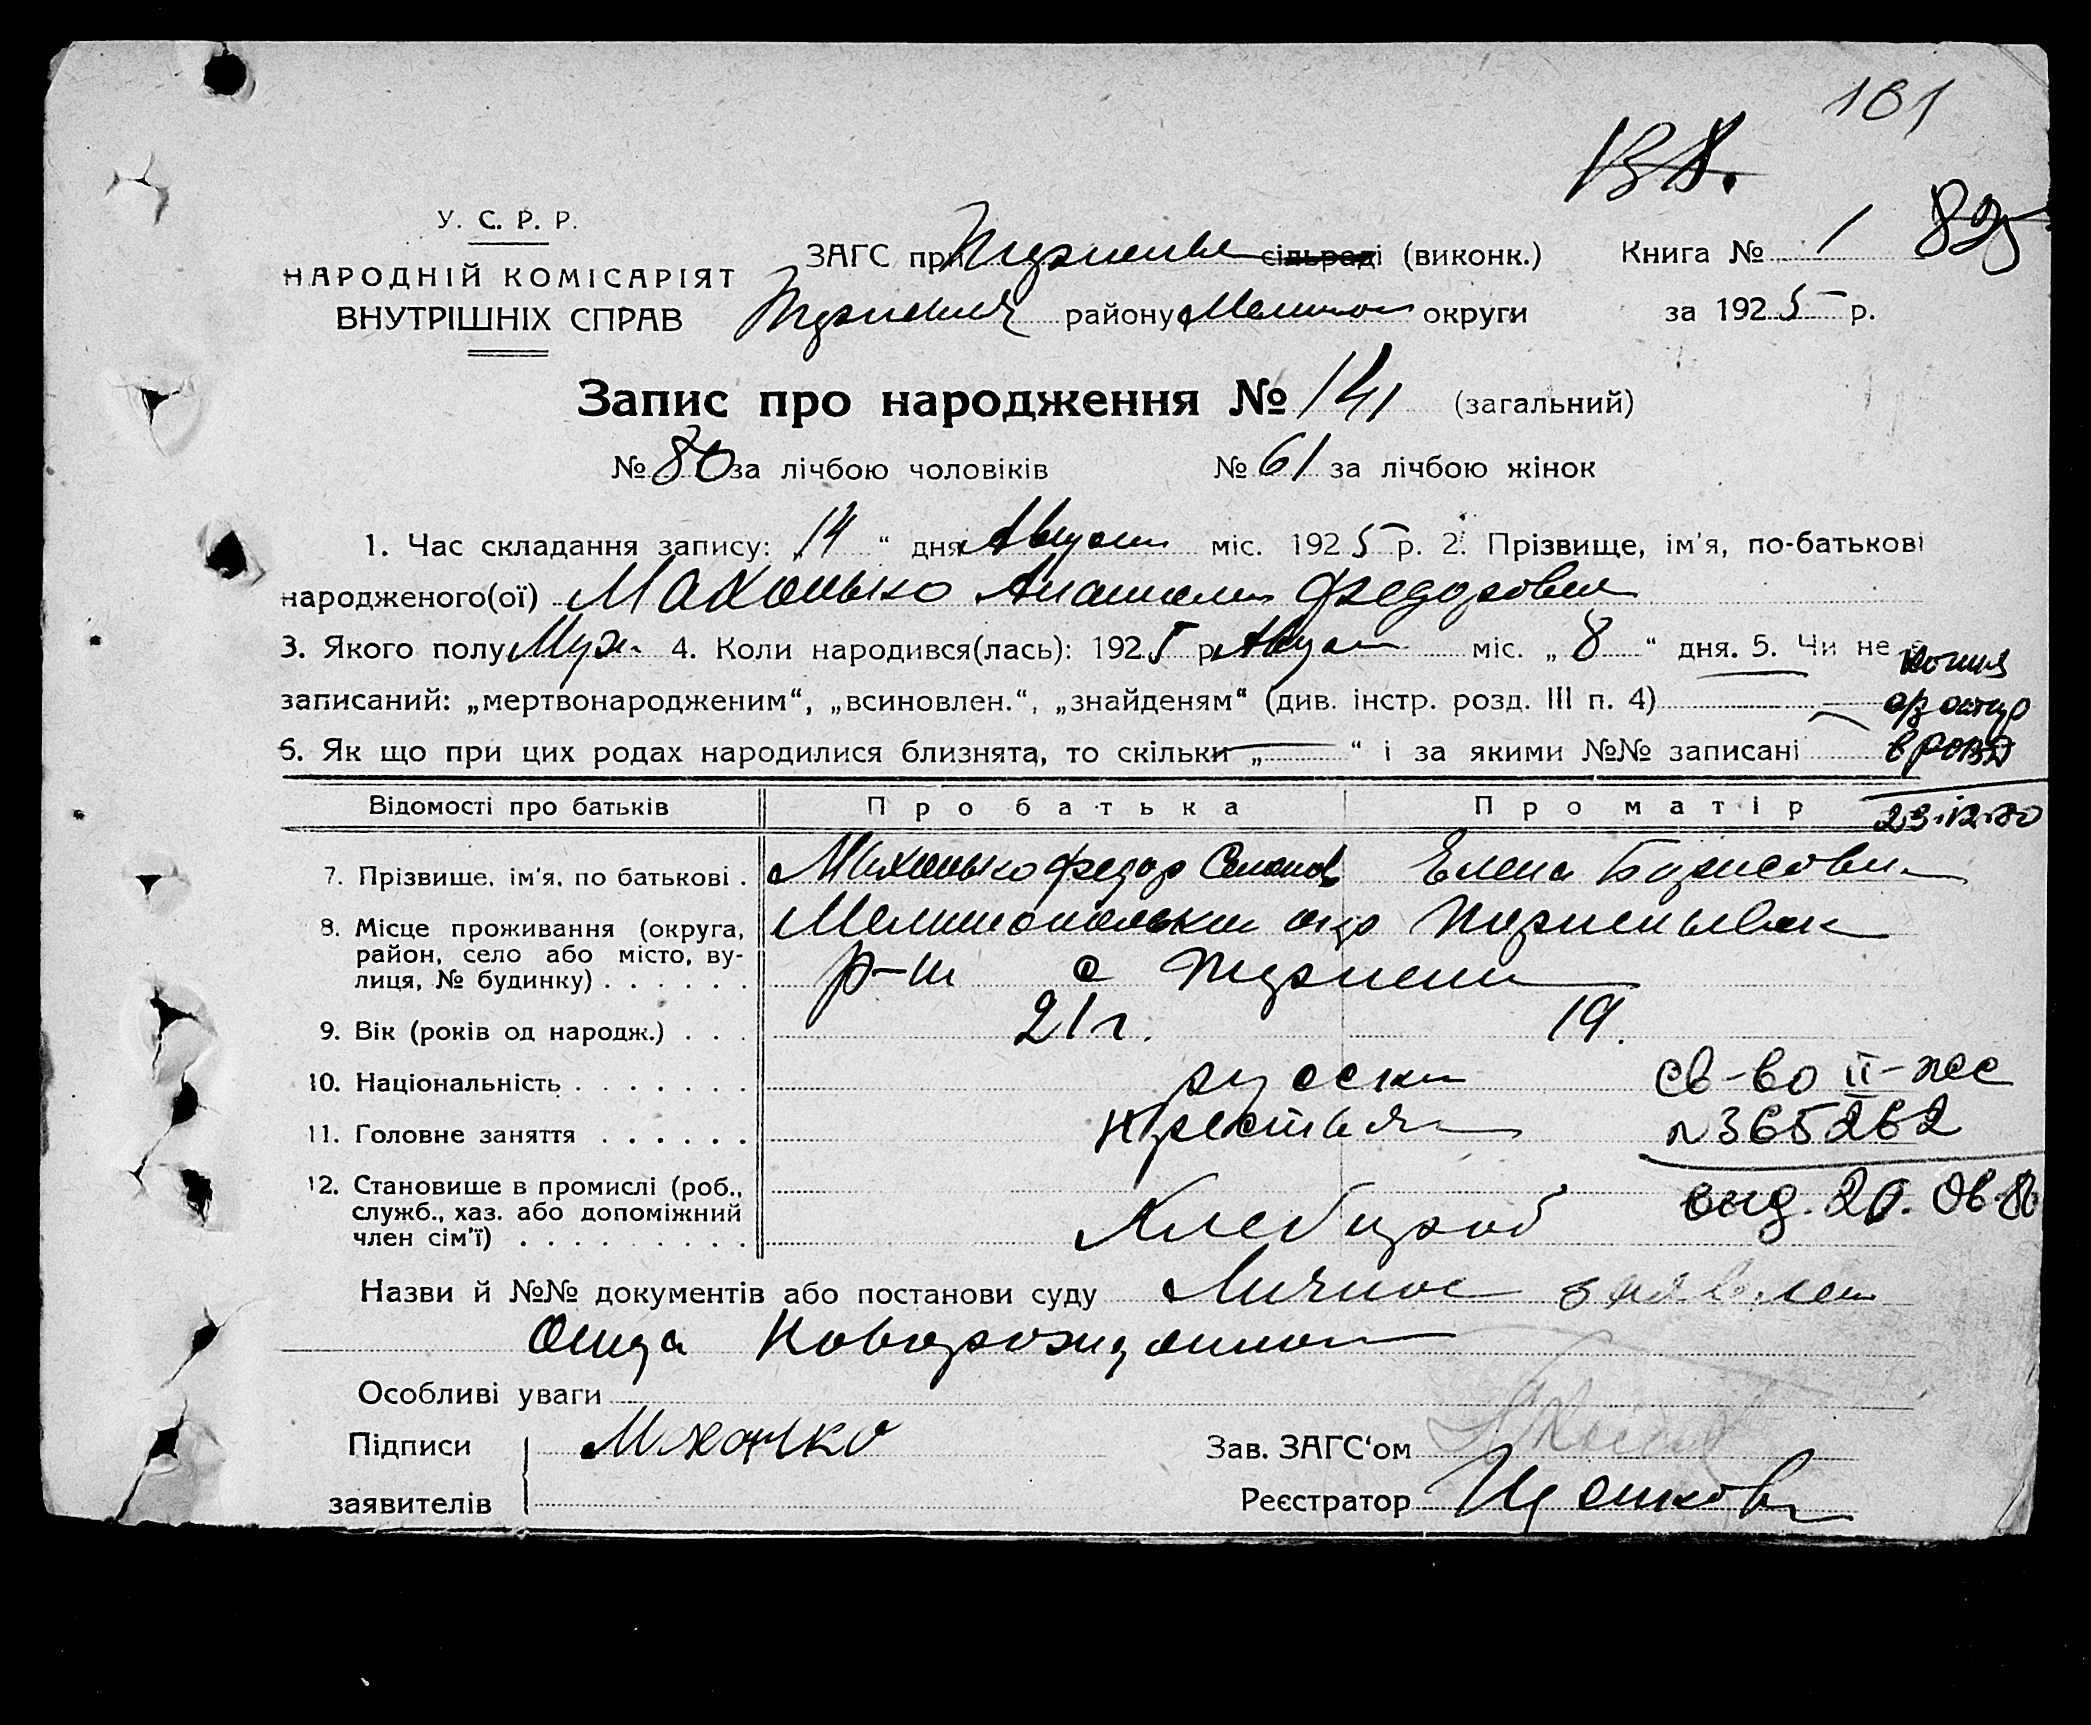 161
У. С. Р. Р.
НАРОДНІЙ КОМІСАРІЯТ
ВНУТРІШНІХ СПРАВ
ЗАГС при сільраді (виконк.) Книга № 1
району округи за 1925 р.
Запис про народження № 141 (загальний)
№ 80 за лічбою чоловіків № 61 за лічбою жінок
1. Час складання запису: „14“ дня Август міс. 1925 р. 2. Прізвище, ім'я, по-батькові
народженого(ої) Махонько Анатолий Федорович
3. Якого полу Муж. 4. Коли народився(лась): 1925 р. Август міс. „8“ дня. 5. Чи не є
записаний: „мертвонародженим“, „всиновлен.“, „знайденям“ (див. інстр. розд. III п. 4)
6. Як що при цих родах народилися близнята, то скільки „—“ і за якими №№ записані
копия
в РОВД
23.12.80
Відомості про батьків Про батька Про матір
7. Прізвище, ім'я, по батькові . Махонько Федор Елена Борисовн
8. Місце проживання (округа,
район, село або місто, ву-
лиця, № будинку) . . . . . . Мелитопольский окр
р-н с
9. Вік (років од народж.) . . . 21 г. 19.
10. Національність . . . . . . . русский
св-во II-жс
11. Головне заняття . . . . . . Крестьян
№365262
12. Становище в промислі (роб.,
служб., хаз. або допоміжний
член сім'ї) . . . . . . . . . Хлебороб
Назви й №№ документів або постанови суду Личное заявлен
Отца Новорожденного
Особливі уваги
Підписи Махонько Зав. ЗАГС'ом
заявителів Реєстратор